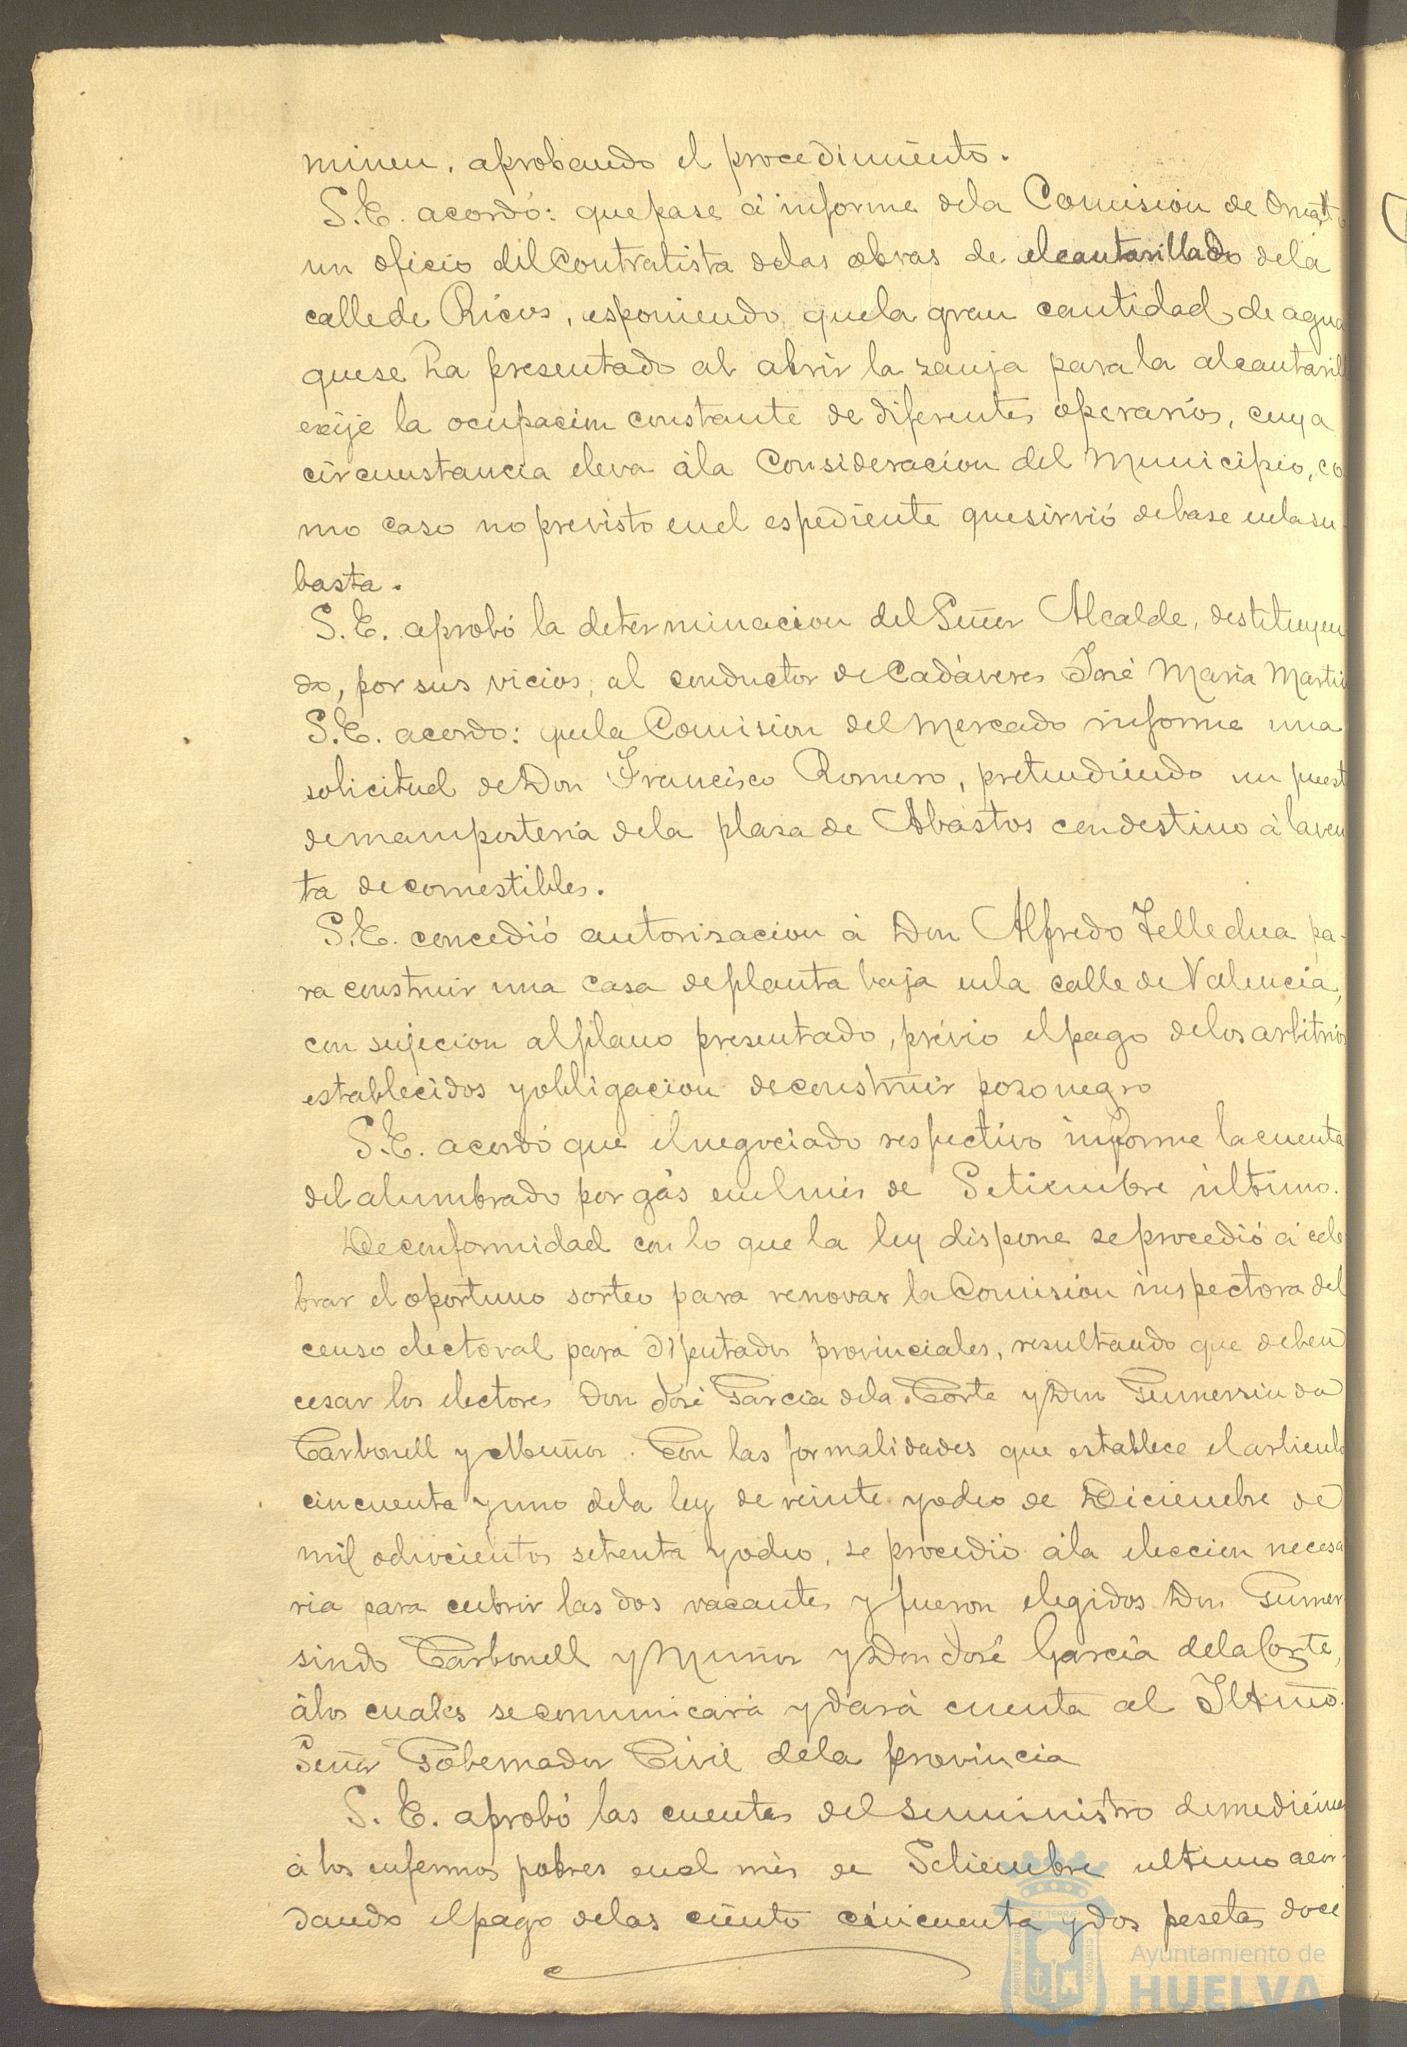 minen, aprobando el procedimiento.
S.E. acordó: que pase á informe dela Comision de Ornato
un oficio del Contratista delas obras de alcantarillado dela
calle de Ricos, esponiendo que la gran cantidad de agua
que se ha presentado al abrir la zanja para la alcantarill
exije la ocupacion constante de diferentes operarios, cuya
circunstancia eleva ála Consideracion del Municipio, co
mo caso no previsto en el espediente que sirvió de base enla su
basta.
S.E. aprobó la determinacion del Señor Alcalde, destituyen
do, por sus vicios, al conductor de Cadáveres José Maria Martin
S.E. acordo: que la Comision del Mercado informe una
solicitud de Don Francisco Romero, pretendiendo un puest
de mamposteria dela plasa de Abastos con destino á la ven
ta de comestibles.
S.E. concedió autorizacion á Don Alfredo pa-
ra construir una casa de planta baja enla calle de Valencia,
con sujecion al plano presentado, prévio el pago delos arbitrios
establecidos y obligacion de construir pozo negro
S.E. acordó que el negociado respectivo informe la cuenta
del alumbrado por gás en el mes de Setiembre último.
De conformidad con lo que la ley dispone se procedió á cele
brar el oportuno sorteo para renovar la Comision inspectora del
censo electoral para Diputados provinciales, resultando que deben
cesar los electores Don José Garcia dela Corte y Don Gumersindo
Carbonell y Muñoz. Con las formalidades que establece el articulo
cincuenta y uno dela ley de veinte y ocho de Diciembre de
mil ochocientos setenta y ocho, se procedió ála eleccion necesa
ria para cubrir las dos vacantes y fueron elegidos Don Gumer
sindo Carbonell y Muñoz y Don José García dela Corte,
álos cuales se comunicará y dará cuenta al Iltmo.
Señor Gobernador Civil dela provincia
S. E. aprobó las cuentas del suministro de medicinas
á los enfermos pobres en el mes de Setiembre ultimo acor-
dando el pago delas ciento cincuenta y dos pesetas doce
Ayuntamiento de
HUELVA